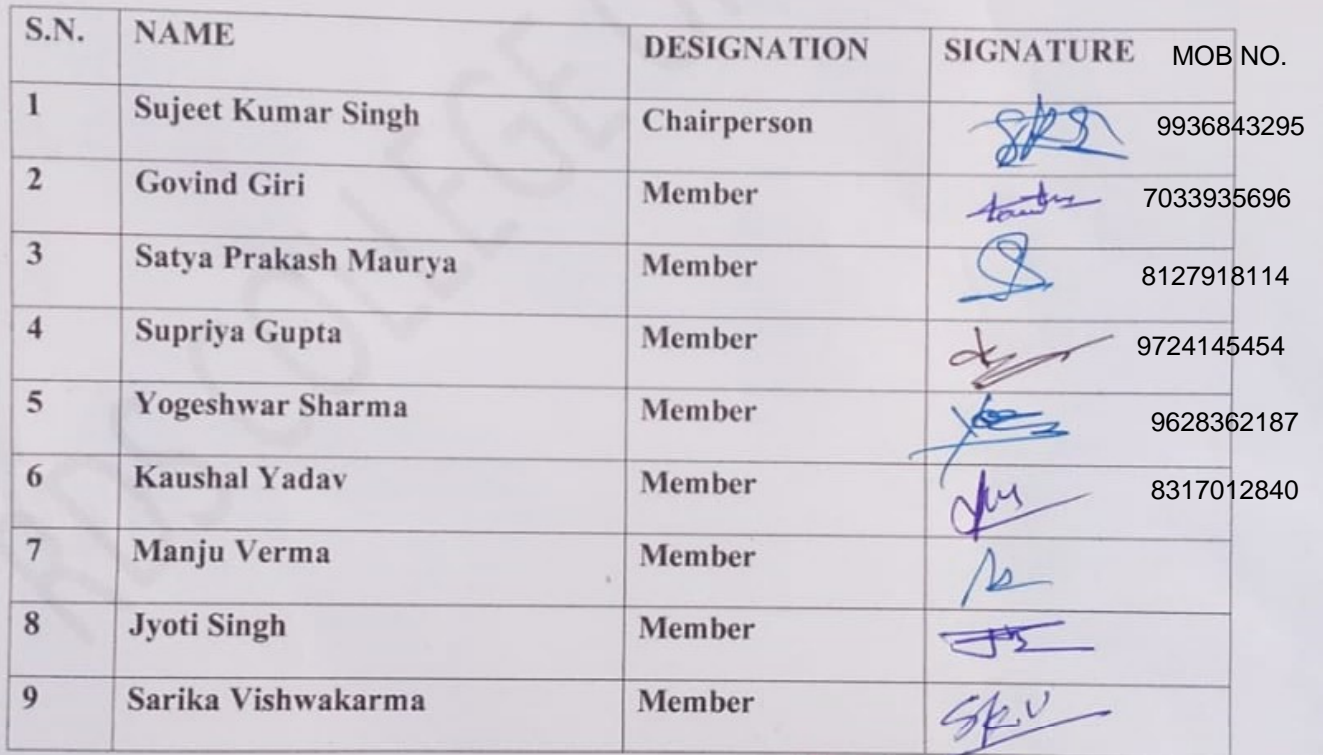 S.N. NAME DESIGNATION SIGNATURE MOB NO.
1 Sujeet Kumar Singh Chairperson SKS 9936843295
2 Govind Giri Member 7033935696
3 Satya Prakash Maurya Member 8127918114
4 Supriya Gupta Member 9724145454
5 Yogeshwar Sharma Member 9628362187
6 Kaushal Yadav Member 8317012840
7 Manju Verma Member
8 Jyoti Singh Member
9 Sarika Vishwakarma Member Sk.V
COLLEGE